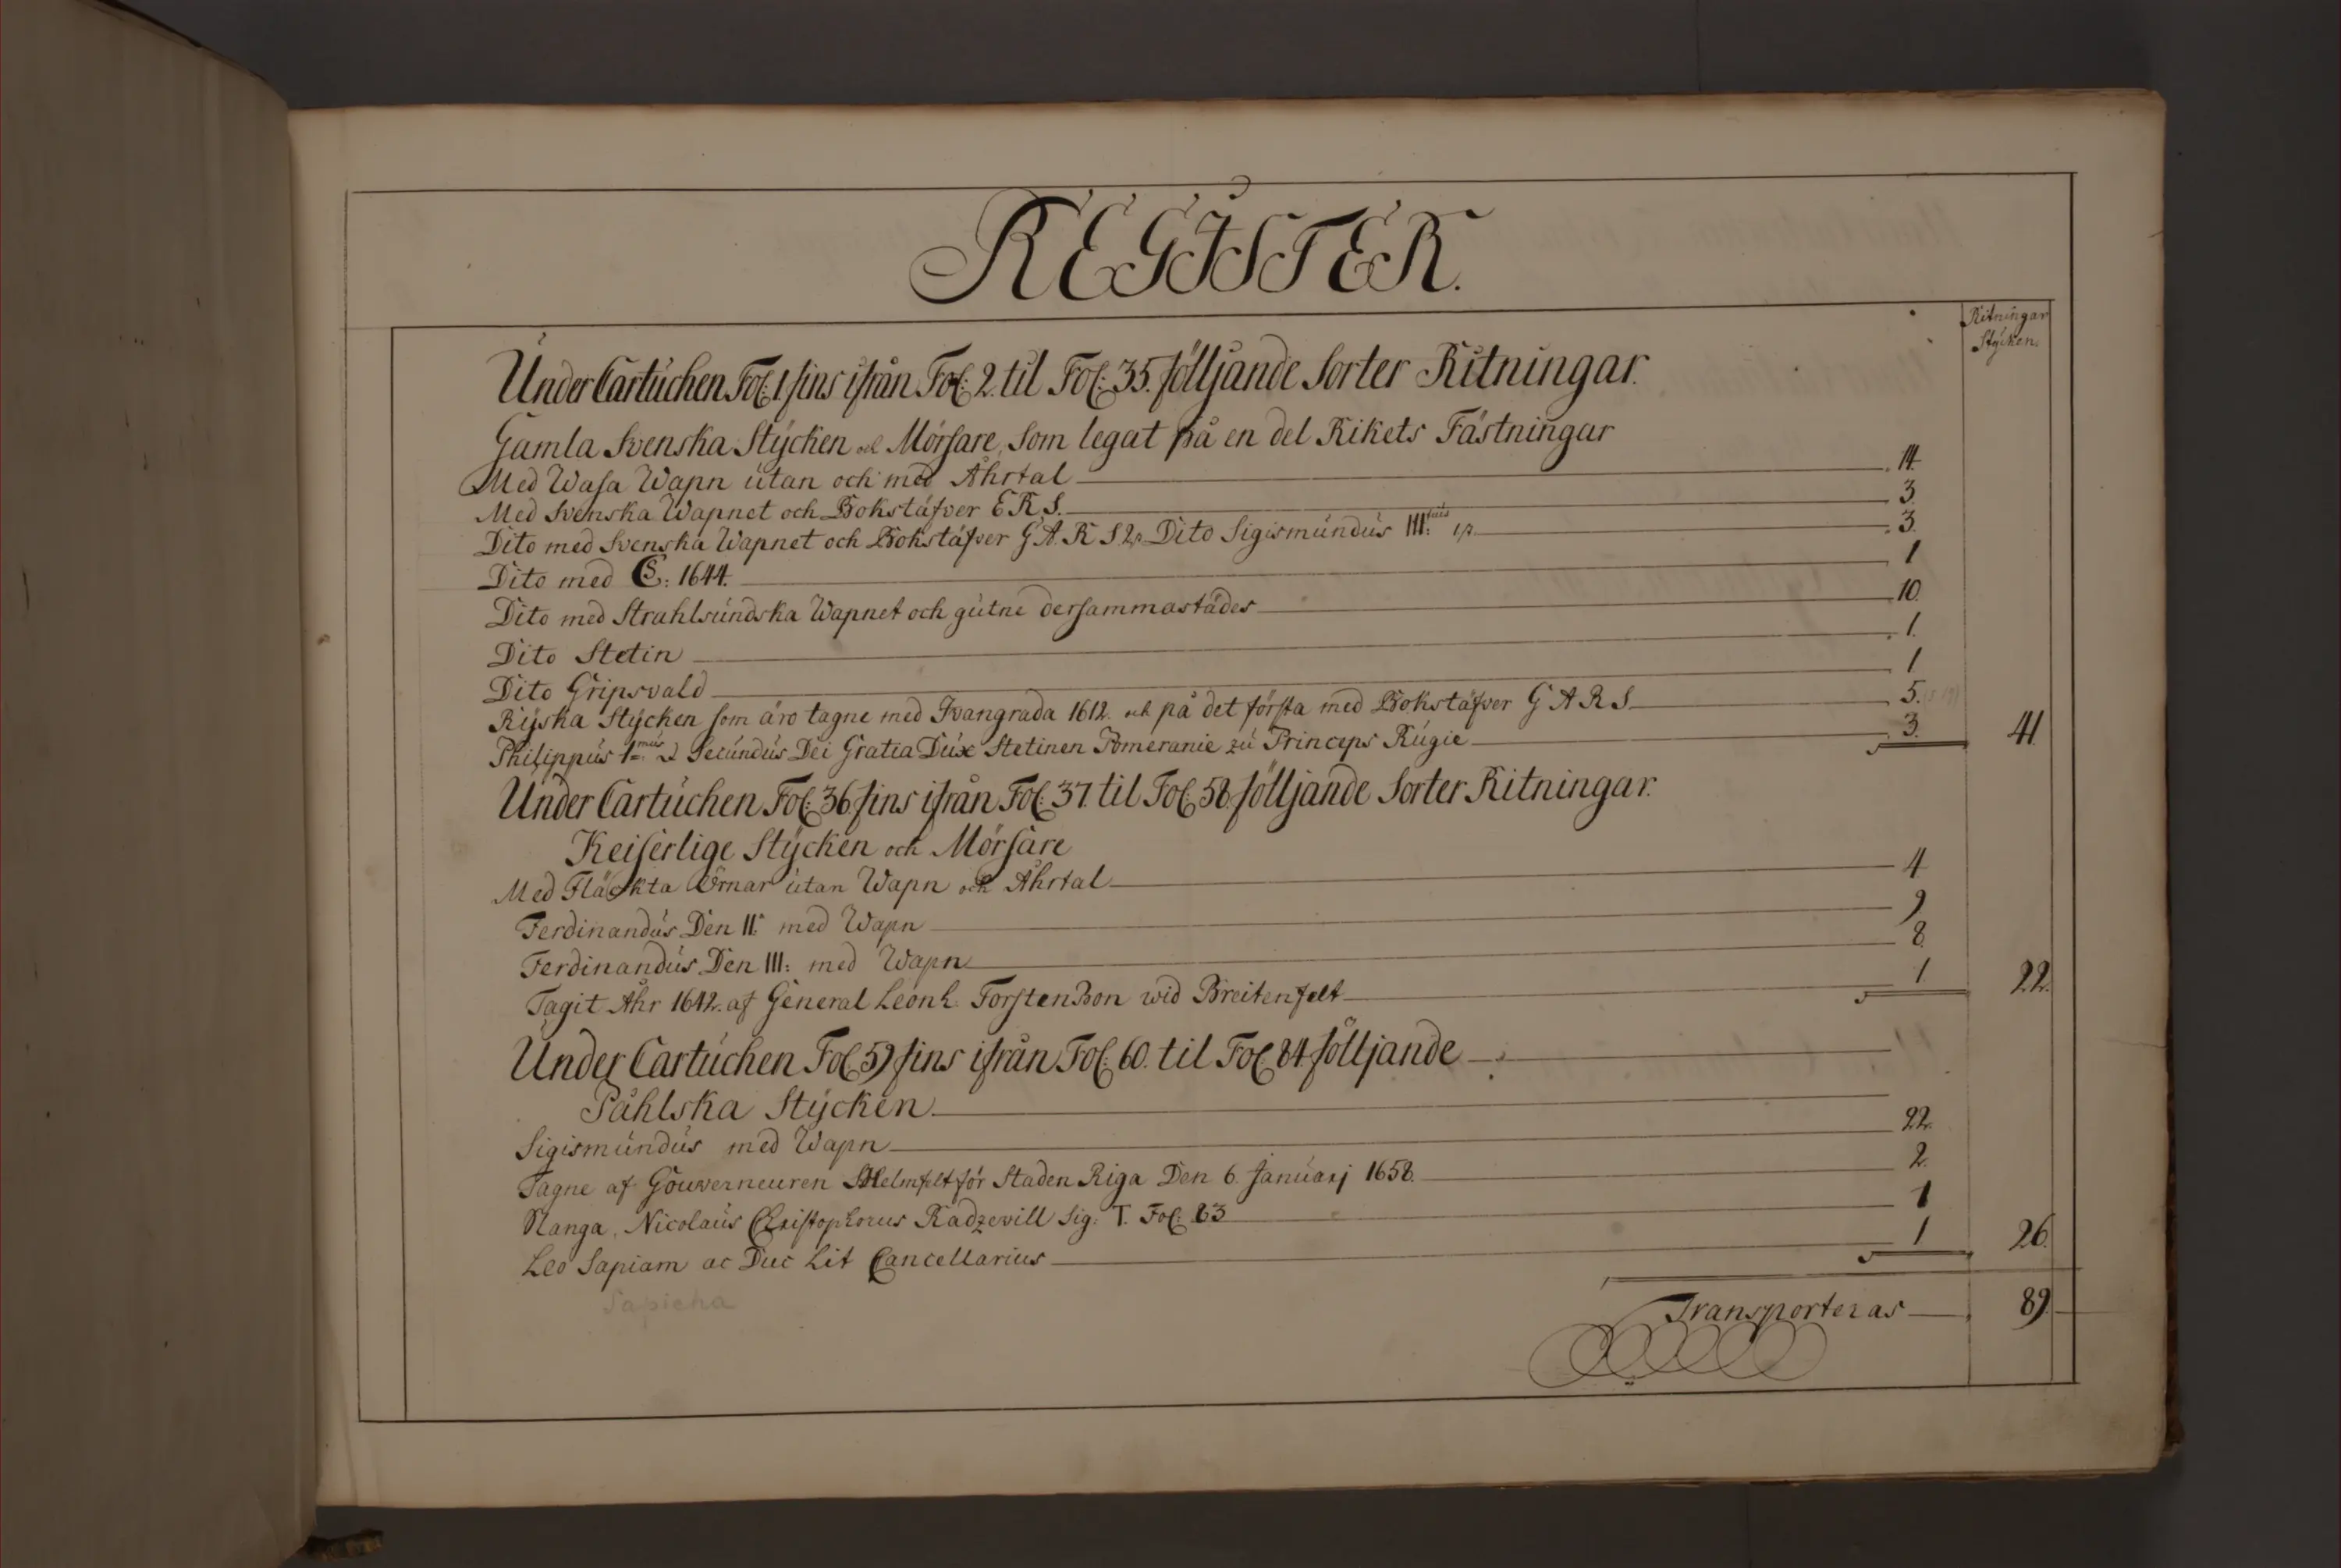 REGISTER.
Ritningar
Stycken.
Under Cartuchen Fol: 1 fins ifrån Fol: 2. til Fol: 35. fölljande Sorter Ritningar.
Gamla Svenska Stycken och Mörsare, Som legat på en del Rikets Fästningar
Med Wasa Wapn utan och med Åhrtal 14.
Med Svenska Wapnet och Bokstäfver E.R.S. 3.
Dito med Svenska Wapnet och Bokstäfver G.A.R.S 2. Dito Sigismundus III: 3.
Dito med CS: 1644. 1
Dito med Strahlsundska Wapnet och gutne dersammastädes 10.
Dito Stetin 1.
Dito Gripsvald 1
Ryska Stycken som äro tagne med Ivangrada 1612. och på det första med Bokstäfver G A R S 5.
Philippus 1mus Secundus Dei Gratia Dux Stetinen Pomeranie zu Princeps Rugie 3. 41.
Under Cartuchen Fol: 36 fins ifrån Fol: 37. til Fol: 58. fölljande Sorter Ritningar.
Keiserlige Stycken och Mörsare
Med Fläckta Örnar utan Wapn och Åhrtal 4
Ferdinandus Den II: med Wapn 9
Ferdinandus Den III: med Wapn 8.
Tagit Åhr 1642. af General Leonh. Torstenson wid Breitenfelt 1. 22.
Under Cartuchen Fol: 59 fins ifrån Fol: 60. til Fol: 84. fölljande
Påhlska Stycken
Sigismundus med Wapn 22.
Tagne af Gouverneuren Helmfelt för Staden Riga Den 6. Januarj 1658. 2.
Slanga, Nicolaus Christophorus Radzevill Sig: T. Fol: 83 1
Leo Sapiam ac Duc Lit Cancellarius 1 26.
Sapieha
Transporteras 89.